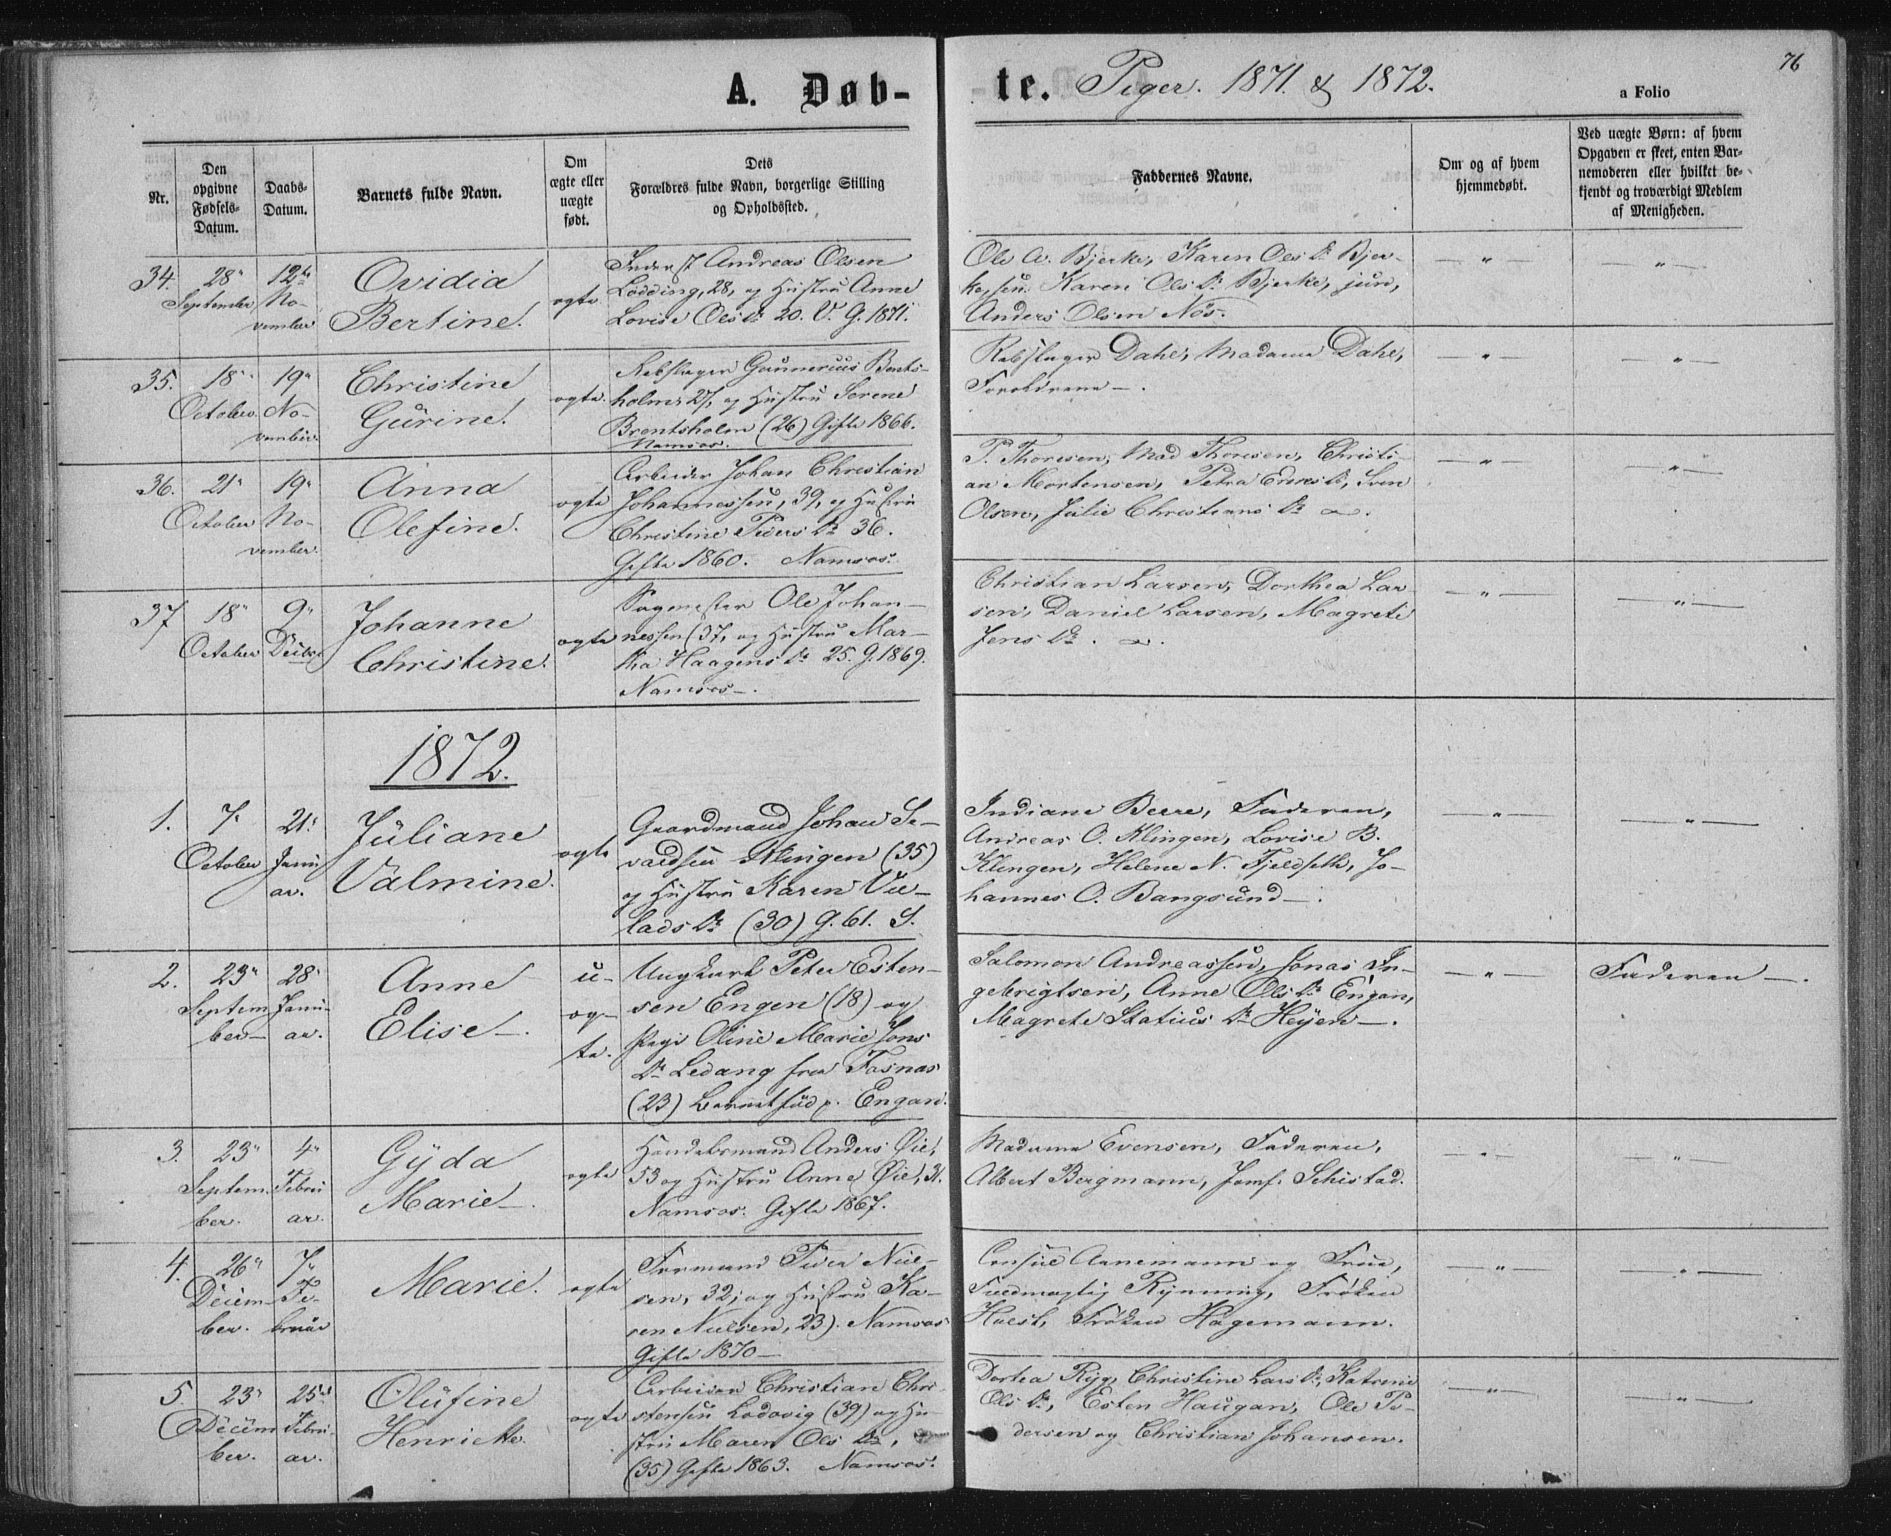 A. Døb-
te. Piger. 1871. & 1872.
76
a Folio
Nr.
Den
opgivne
Fødsels-
Datum.
Daabs-
Datum.
Barnets fulde Navn.
Om
ægte eller
uægte
født.
Dets
Forældres fulde Navn, borgerlige Stilling
og Opholdssted.
Faddernes Navne.
Om og af hvem
hjemmedøbt.
Ved uægte Børn: af hvem
Opgaven er skeet, enten Bar-
nemoderen eller hvilket be-
kjendt og troværdigt Medlem
af Menigheden.
34.
28"
September
12te
No-
vember
Ovidia
Bertine.
ægte
Inderst Andreas Olsen
Lødding, 28, og Hustru Anne
Lovise Olsdr 20. V. G. 1871.
Ole A. Bjerke, Karen Olsdr Bjer-
ke, sen. Karen Olsdr Bjerke, jun,
Anders Olsen Nøs.
— " —
— " —
35.
18"
October
19"
No-
vember
Christine
Gürine.
ægte.
Rebslager Gunnerius Bents-
holm, 27, og Hustru Serene
Brentsholm (26) Gifte 1866.
Namsos.
Rebslager Dahl, Madame Dahl,
Forældrene —.
— " —
— " —
36.
21"
October
19"
No-
vember
Anna
Olefine.
ægte
Arbeider Johan Christian
Johannessen, 39, og Hustru
Christine Pedersdr 36.
Gifte 1860. Namsos.
P. Thoresen, Mad Thoresen, Christi-
an Mortensen, Petra Ericsdr, Sven
Olsen, Julie Christiansdr
— " —
— " —
37
18"
October
9"
Decbr
Johanne
Christine.
ægte
Sagmester Ole Johan-
nessen (37, og Hustru Mar-
tha Haagensdr 25. G. 1869.
Namsos—.
Christian Larsen, Dorthea Lar-
sen, Daniel Larsen, Magrete
Jensdr.
— " —
— " —
1872.
1.
7"
October
21"
Janu
ar.
Juliane
Valmine.
ægte
Gaardmand Johan Se-
valdsen Klingen (35)
og Hustru Karen Vil-
ladsdr (30) G. 61. S.
Indiane Beere, Faderen,
Andreas O. Klingen, Lovise B.
Klingen, Helene N. Fjeldseth, Jo-
hannes O. Bangsund —.
— " —
— " —
2.
23"
Septem
ber—
28"
Janu-
ar.
Anne
Elise—.
u-
æg-
te.
Ungkarl Peter Esten-
sen Engen (18) og
Pige Oline Marie Jons
dr Ledang fra Fosnæs
(23) Barnet fød p. Engan.
Salomon Andreassen, Jonas In-
gebrigtsen, Anne Olsdr Engan,
Magrete Statiusdr Heyen—.
— " —
Faderen —.
3.
23"
Septem
ber.
4"
Febru
ar.
Gyda
Marie—.
ægte
Handelsmand Anders Øie,
53 og Hustru Anne Øie, 31.
Namsos. Gifte 1867.
Madame Evensen, Faderen,
Albert Bergmann, Jomf. Schistad.
— " —
— " —
4.
26"
Decem-
ber.
7"
Fe-
bruar
Marie.
ægte
Formand Peder Niel-
sen, 32, og Hustru Ka-
ren Nielsen, 23). Namsos
Gifte 1870—
Consul Annemann og Frue,
Fuldmægtig Rynning, Frøken
Holst, Frøken Hagemann.
— " —
— " —
5.
23"
Decem
ber.
25de
Febru-
ar.
Olüfine
Henriette.
ægte
Arbeider Christian Chri-
stensen Lodovig (39) og Hu-
stru Maren Olsdr,
(35) Gifte 1863. Namsos.
Dortea Ryg, Christine Larsdr, Katrene
Olsdr, Esten Haugan, Ole Pe-
dersen og Christian Johansen.
— " —
— " —